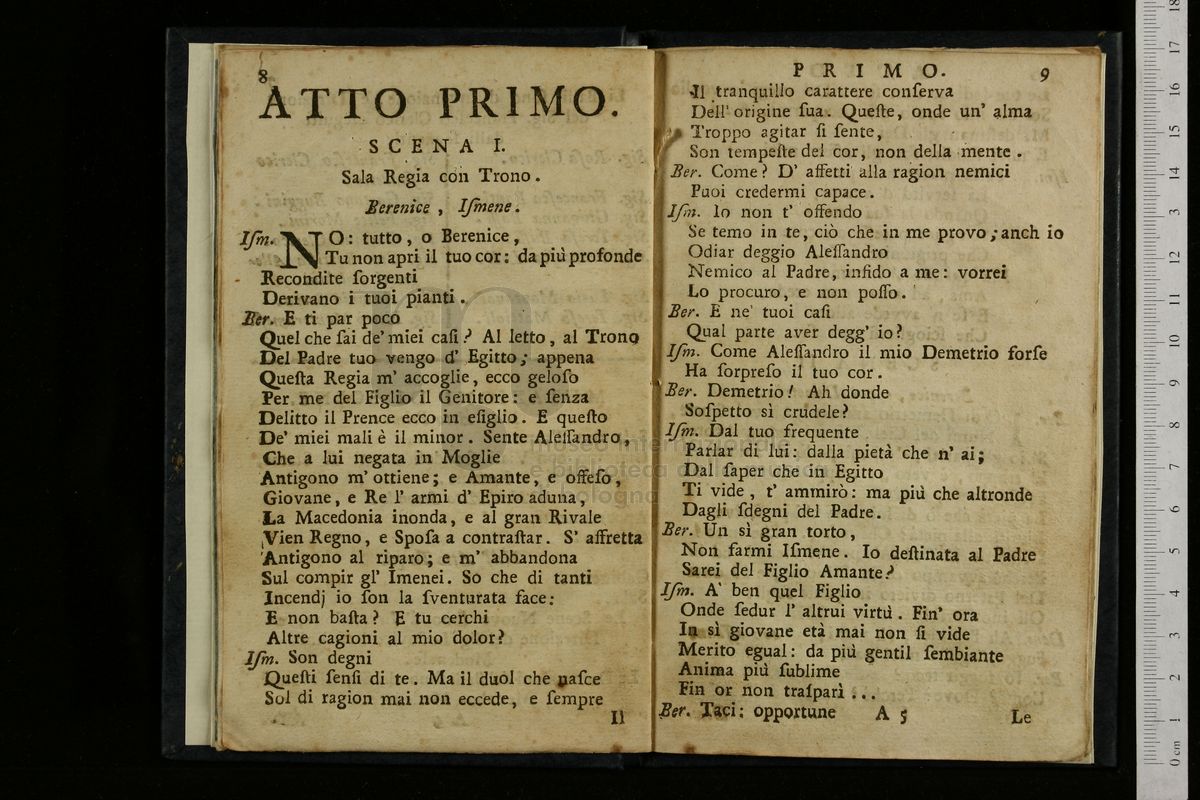 8
ATTO PRIMO.
SCENA I.
Sala Regia con Trono.
Berenice, Iſmene.
Iſm. NO: tutto, o Berenice,
Tu non apri il tuo cor: da più profonde
Recondite ſorgenti
Derivano i tuoi pianti.
Ber. E ti par poco
Quel che ſai de' miei caſi? Al letto, al Trono
Del Padre tuo vengo d' Egitto; appena
Queſta Regia m' accoglie, ecco geloſo
Per me del Figlio il Genitore: e ſenza
Delitto il Prence ecco in eſiglio. E queſto
De' miei mali è il minor. Sente Aleſſandro,
Che a lui negata in Moglie
Antigono m' ottiene; e Amante, e offeſo,
Giovane, e Re l' armi d' Epiro aduna,
La Macedonia inonda, e al gran Rivale
Vien Regno, e Spoſa a contraſtar. S' affretta
Antigono al riparo; e m' abbandona
Sul compir gl' Imenei. So che di tanti
Incendj io ſon la ſventurata face:
E non baſta? E tu cerchi
Altre cagioni al mio dolor?
Iſm. Son degni
Queſti ſenſi di te. Ma il duol che naſce
Sol di ragion mai non eccede, e ſempre
Il
PRIMO. 9
Il tranquillo carattere conſerva
Dell' origine ſua. Queſte, onde un' alma
Troppo agitar ſi ſente,
Son tempeſte del cor, non della mente.
Ber. Come? D' affetti alla ragion nemici
Puoi credermi capace.
Iſm. Io non t' offendo
Se temo in te, ciò che in me provo; anch io
Odiar deggio Aleſſandro
Nemico al Padre, infido a me: vorrei
Lo procuro, e non poſſo.
Ber. E ne' tuoi caſi
Qual parte aver degg' io?
Iſm. Come Aleſſandro il mio Demetrio forſe
Ha ſorpreſo il tuo cor.
Ber. Demetrio! Ah donde
Soſpetto sì crudele?
Iſm. Dal tuo frequente
Parlar di lui: dalla pietà che n' ai;
Dal ſaper che in Egitto
Ti vide, t' ammirò: ma più che altronde
Dagli ſdegni del Padre.
Ber. Un sì gran torto,
Non farmi Iſmene. Io deſtinata al Padre
Sarei del Figlio Amante?
Iſm. A' ben quel Figlio
Onde ſedur l' altrui virtù. Fin' ora
In sì giovane età mai non ſi vide
Merito egual: da più gentil ſembiante
Anima più ſublime
Fin or non traſparì ...
Ber. Taci: opportune A 5 Le